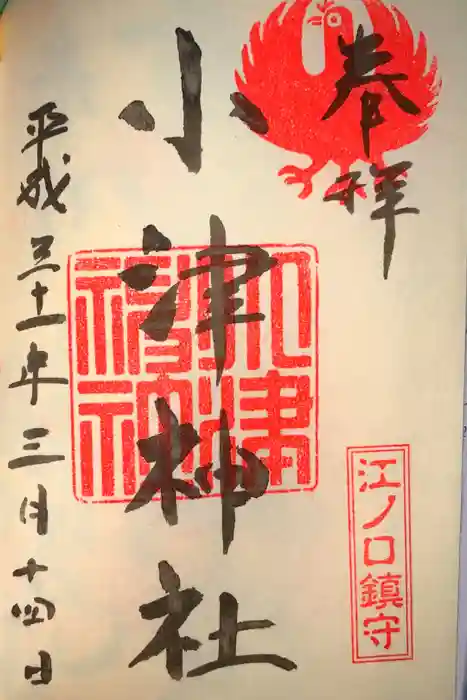 奉拝
小津神社
江ノ口鎮守
平成三十一年三月十四日